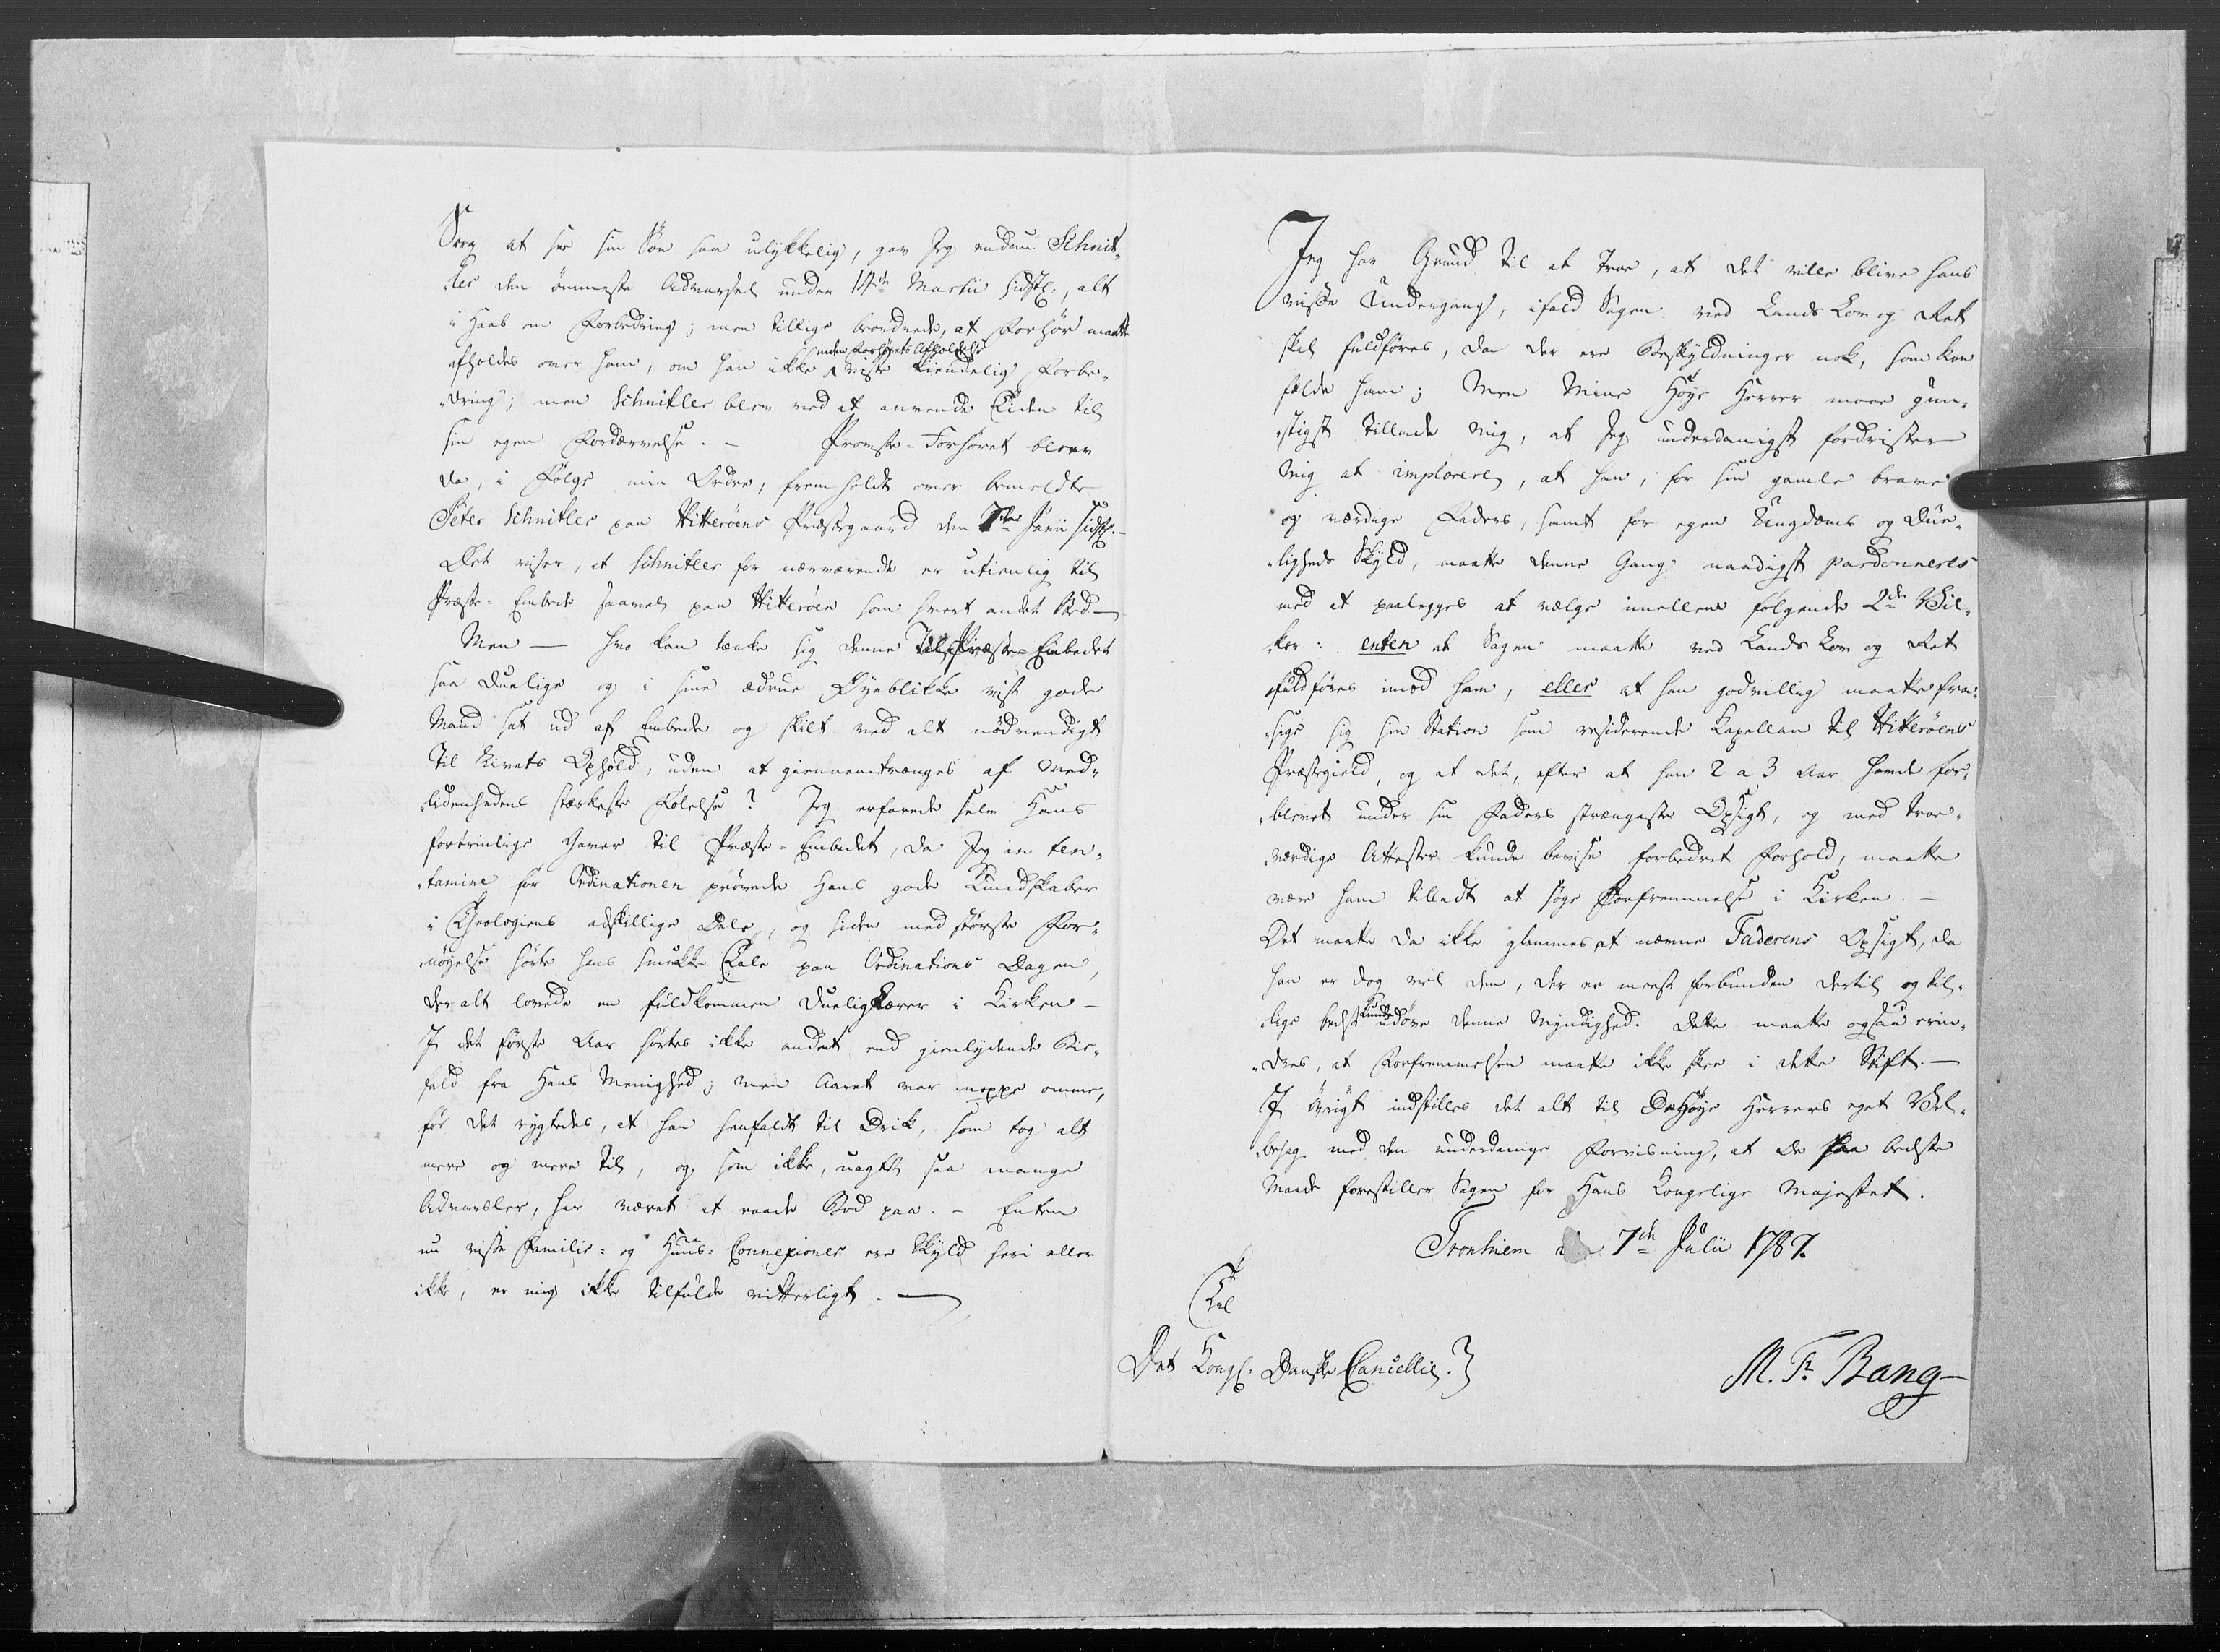 Sorg at see sin Søn saa ulykkelig, gav Jeg endnu Schnit-
ler den ömmeste Advarsel under 14de Martii sidstl., alt
i Haab om Forbedring; men tillige beordrede, at Forhör maatte
afholdes over ham, om han ikke inden Forhörets Afholdelse viste kiendelig Forbe-
dring; men Schnitler blev ved at anvende Tiden til
sin egen Fordærvelse. – Provste-Forhöret blev
da, i Fölge min Ordre, fremholdt over bemeldte
Peter Schnitler paa Hitteröens Præstegaard den 7de Junii sidstl. –
Det viser, at Schnitler for nærværende er utienlig til
Præste-Embede saavel paa Hitteröen som hvert andet Sted –
Men — hvo kan tænke sig denne til Præste-Embedet
saa duelige og i sine ædrue Øyeblikke vist gode
Mand sat ud af Embede og skilt ved alt nödvendigt
til Livets Ophold, uden at giennemtrænges af Med-
lidenhedens stærkeste Fölelse? Jeg erfarede selv Hans
fortrinlige Gaver til Præste-Embedet, da Jeg in ten-
tamine for Ordinationen prövede Hans gode Kundskaber
i Theologiens adskillige Dele, og siden med störste For-
nöyelse hörte hans smukke Tale paa Ordinations Dagen,
der alt lovede en fuldkommen duelig Lærer i Kirken –
I det förste Aar hörtes ikke andet end gienlydende Bie-
fald fra Hans Menighed; men Aaret var neppe omme,
för det rygtedes, at han henfaldt til Drik, som tog alt
mere og mere til, og som ikke, uagtet saa mange
Advarsler, har været at raade Bod paa. – Enten
nu visse Familie- og Huus-Connexioner ere Skyld heri eller
ikke, er mig ikke tilfulde vitterligt. —
Jeg har Grund til at troe, at det ville blive hans
visse Undergang, ifald Sagen ved Lands Lov og Ret
skal fuldföres, da der ere Beskyldninger nok, som kan
fælde ham; Men Mine Höye Herrer maae gun-
stigst tillade mig, at Jeg underdanigst fordrister
mig at implorere, at han, for sin gamle brave
og værdige Faders, samt for egen Ungdoms og Due-
ligheds Skyld, maatte denne Gang naadigst pardonneres
med at paalegges at vælge imellem fölgende 2de Vil-
kor: enten at Sagen maatte ved Lands Lov og Ret
fuldföres imod ham, eller at han godvillig maatte fra-
sige sig sin Station som residerende Kapellan til Hitteröens
Præstegield, og at det, efter at han 2 a 3 Aar havde for-
blevet under sin Faders strængeste Opsigt, og med troe-
værdige Attester kunde bevise forbedret Forhold, maatte
være ham tilladt at söge Forfremmelse i Kirken. –
Det maatte da ikke glemmes at nævne Faderens Opsigt, da
han er dog vel den, der er meest forbunden dertil og til-
lige bedst kunde udöve denne Myndighed. Dette maatte ogsaa erin-
dres, at Forfremmelsen maatte ikke skee i dette Stift. —
I övrigt indstilles det alt til De Höye Herrers eget Vel-
behag med den underdanige Forvisning, at De paa bedste
Maade forestiller Sagen for Hans Kongelige Majestet.
Tronhiem den 7de Julii 1787.
Til
Det Kongl. Danske Cancellie.
M. Fr. Bang